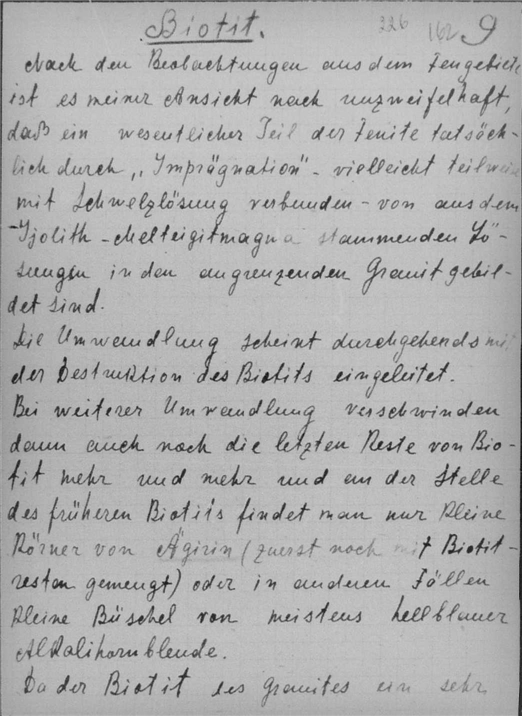 Biotit. 226 162 9
Nach den Beobachtungen aus dem Fengebiete
ist es meiner Ansicht nach unzweifelhaft,
daß ein wesentlicher Teil der Fenite tatsäch-
lich durch „Imprägnation"- vielleicht teilweise
mit Schmelzlösung verbunden - von aus dem
-Ijolith-Melteigitmagma stammenden Lö-
sungen in den angrenzenden Granit gebil-
det sind.
Die Umwandlung scheint durchgehends mit
der Destruktion des Biotits eingeleitet.
Bei weiterer Umwandlung verschwinden
dann auch noch die letzten Reste von Bio-
tit mehr und mehr und an der Stelle
des früheren Biotits findet man nur kleine
Körner von Ägirin (zuerst noch mit Biotit-
resten gemengt) oder in anderen Fällen
kleine Büschel von meistens hellblauer
Alkalihornblende.
Da der Biotit des Granites ein sehr